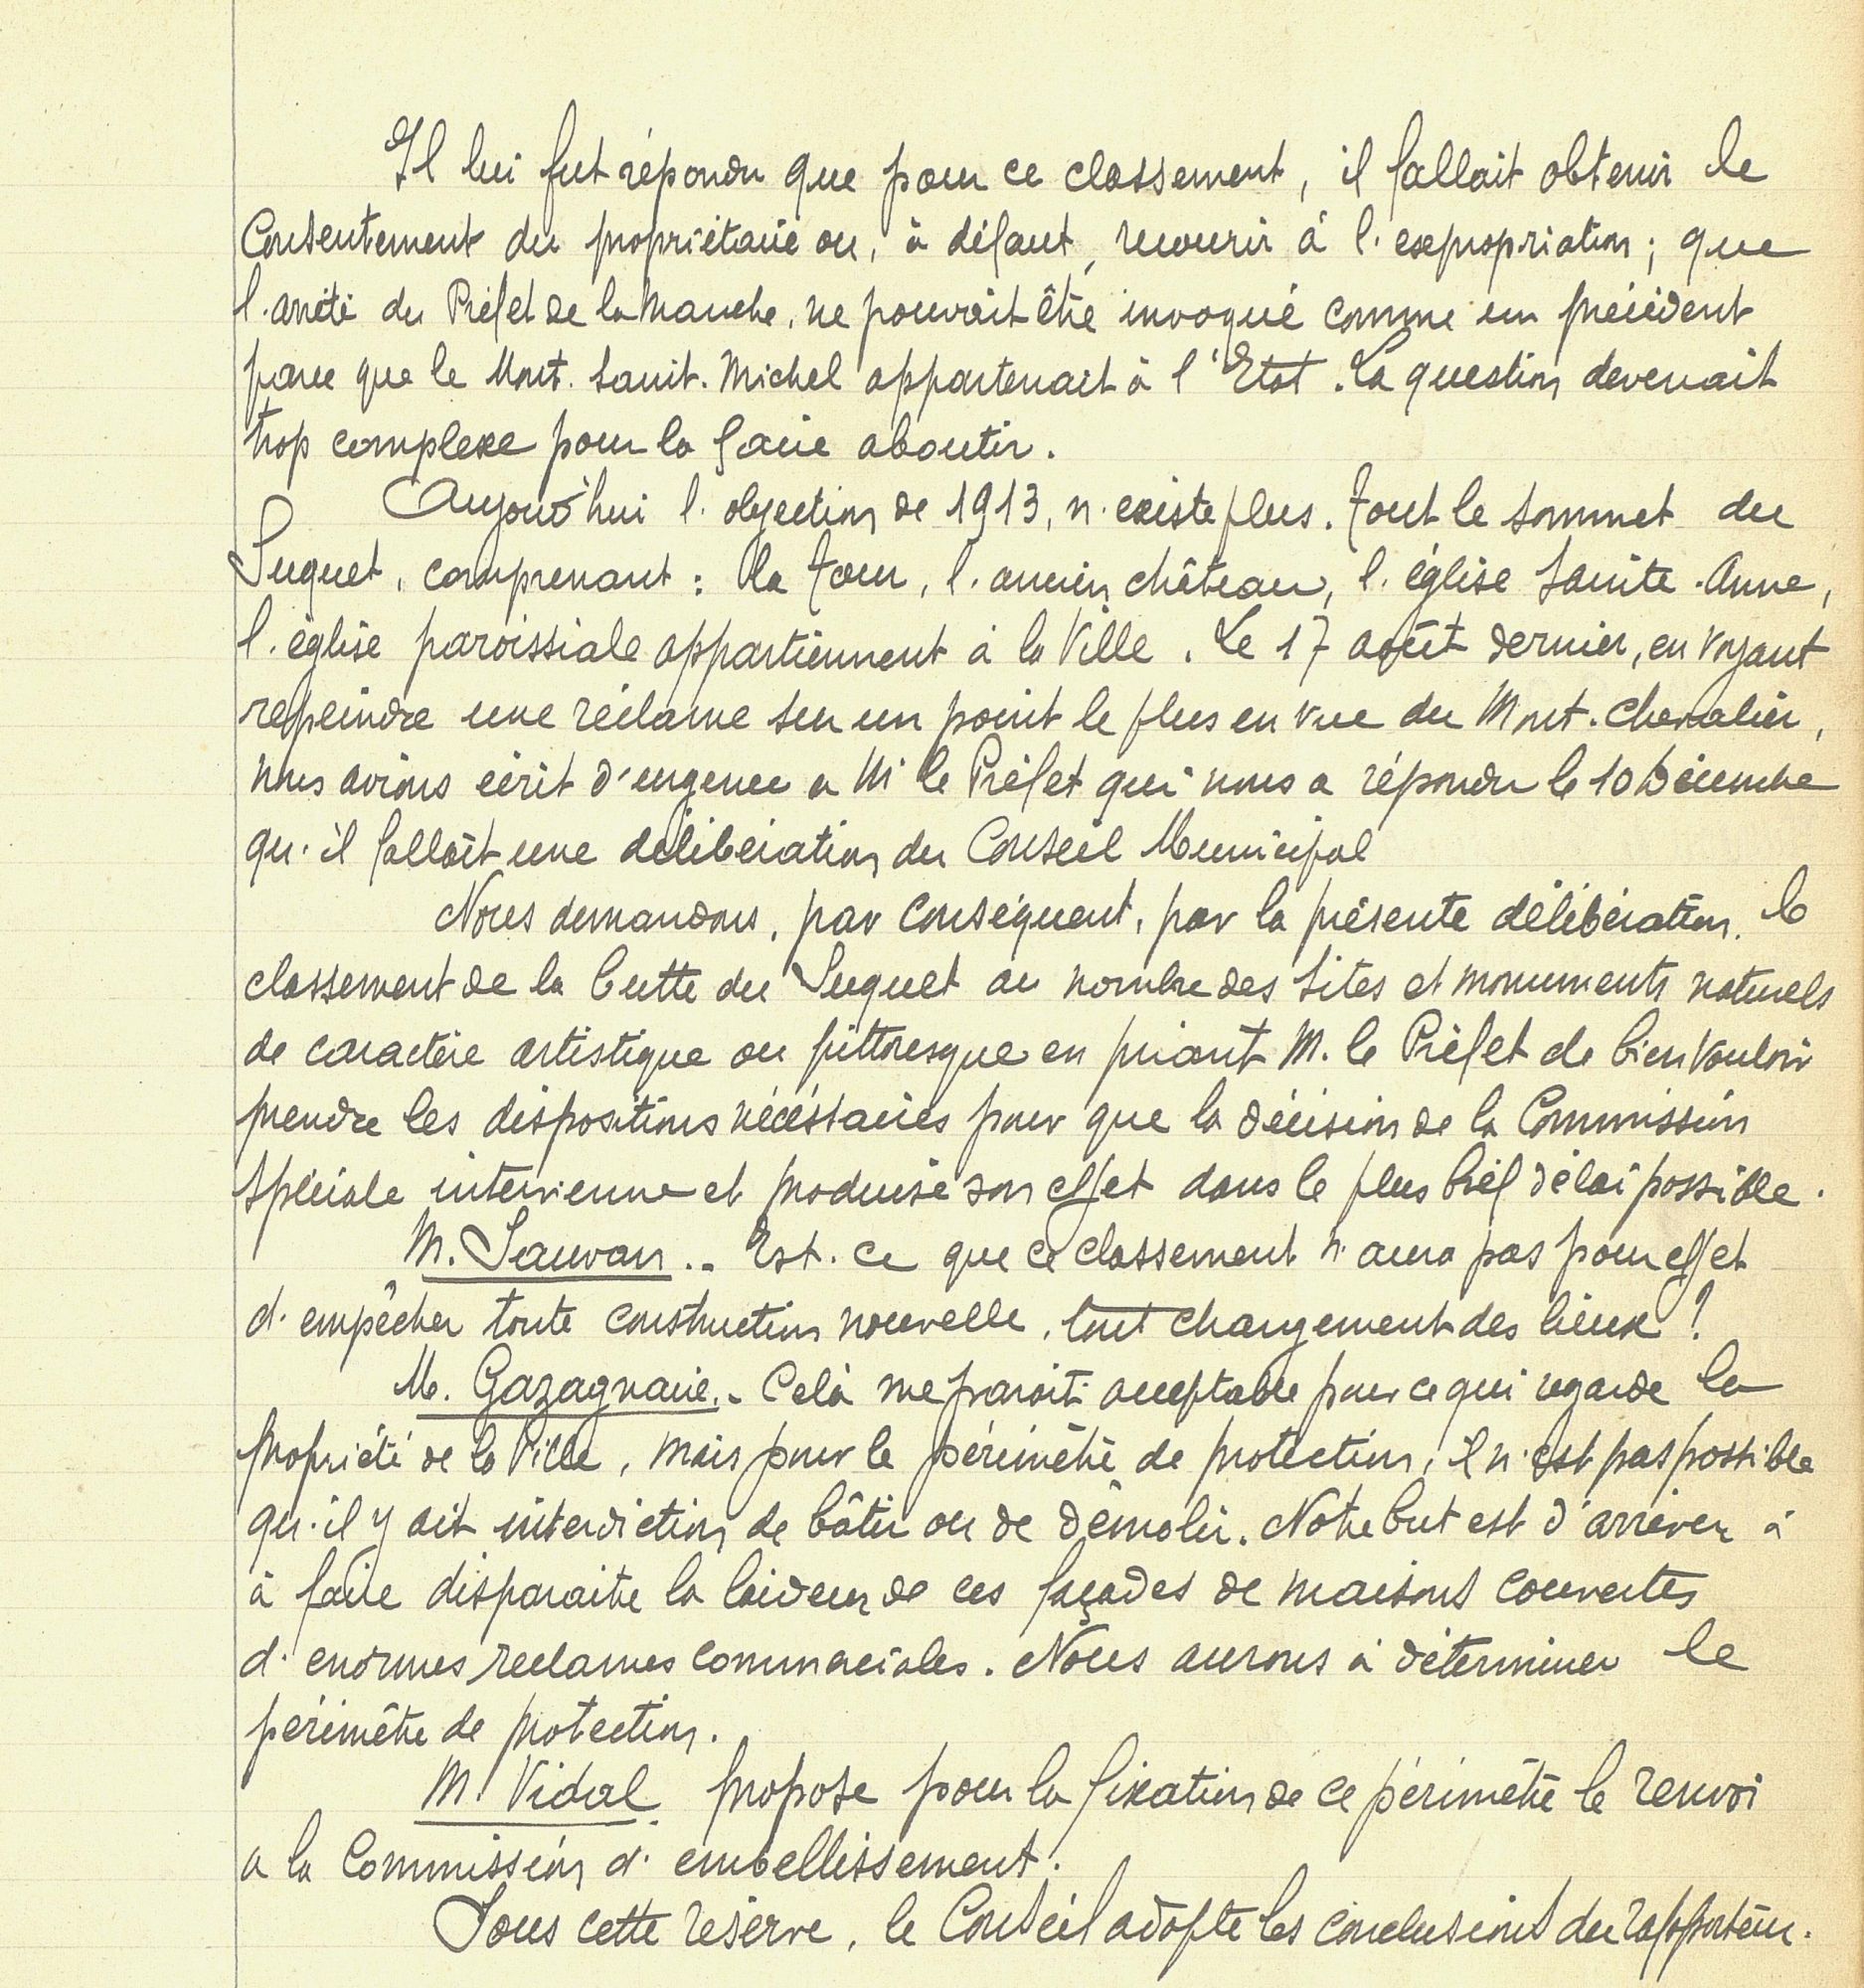 Il lui fut répondu que pour ce classement, il fallait obtenir le
Consentement du propriétaire ou, à défaut, recourir à l'expropriation ; que
l'arrêté du Préfet de la Manche, ne pouvait être invoqué comme un précédent
parce que le Mont-Saint-Michel appartenait à l'Etat. La question devenait
trop complexe pour la faire aboutir.
Aujourd'hui l'objection de 1913, n'existe plus. Tout le sommet du
Suquet, comprenant : la Tour, l'ancien château, l'église Sainte-Anne,
l'église paroissiale appartiennent à la Ville. Le 17 août dernier, en voyant
repeindre une réclame sur un point le plus en vue du Mont-Chevalier,
nous avions écrit d'urgence a M. le Préfet qui nous a répondu le 10 Décembre
qu'il fallait une délibération du Conseil Municipal
Nous demandons, par conséquent, par la présente délibération, le
classement de la butte du Suquet au nombre des Sites et monuments naturels
de caractère artistique ou pittoresque en priant M. le Préfet de bien vouloir
prendre les dispositions nécéssaires pour que la décision de la Commission
Spéciale intervienne et produise son effet dans le plus bref délai possible.
M. Sauvan.- Est-ce que ce classement n'aura pas pour effet
d'empêcher toute construction nouvelle, tout changement des lieux ?
M. Gazagnaire.- Celà me paraît acceptable pour ce qui regarde la
propriété de la Ville, mais pour le périmètre de protection, il n'est pas possible
qu'il y ait interdiction de bâtir ou de démolir. Notre but est d'arriver à
à faire disparaitre la laideur de ces façades de maisons couvertes
d'enormes reclames commerciales. Nous aurons à déterminer le
périmètre de protection.
M. Vidal propose pour la fixation de ce périmètre le renvoi
a la Commission d'embellissement.
Sous cette réserve, le Conseil adopte les conclusions du rapporteur.